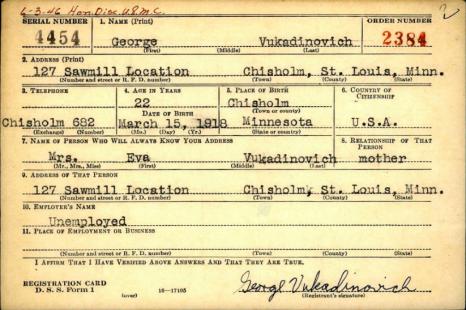 6-3-46 Hon. Disc. U.S.M.C.
SERIAL NUMBER 1. NAME (Print) ORDER NUMBER
4454 George Vukadinovich 2384
(First) (Middle) (Last)
2. ADDRESS (Print)
127 Sawmill Location Chisholm, St. Louis, Minn.
(Number and street or R. F. D. number) (Town) (County) (State)
3. TELEPHONE 4. AGE IN YEARS 5. PLACE OF BIRTH 6. COUNTRY OF CITIZENSHIP
22 Chisholm
DATE OF BIRTH (Town or county)
Chisholm 682 March 15, 1918 Minnesota U.S.A.
(Exchange) (Number) (Mo.) (Day) (Yr.) (State or country)
7. NAME OF PERSON WHO WILL ALWAYS KNOW YOUR ADDRESS 8. RELATIONSHIP OF THAT PERSON
Mrs. Eva Vukadinovich mother
(Mr., Mrs., Miss) (First) (Middle) (Last)
9. ADDRESS OF THAT PERSON
127 Sawmill Location Chisholm, St. Louis, Minn.
(Number and street or R. F. D. number) (Town) (County) (State)
10. EMPLOYER'S NAME
Unemployed
11. PLACE OF EMPLOYMENT OR BUSINESS
(Number and street or R. F. D. number) (Town) (County) (State)
I AFFIRM THAT I HAVE VERIFIED ABOVE ANSWERS AND THAT THEY ARE TRUE.
REGISTRATION CARD
D. S. S. Form 1 (over) 16-17105
George Vukadinovich
(Registrant's signature)